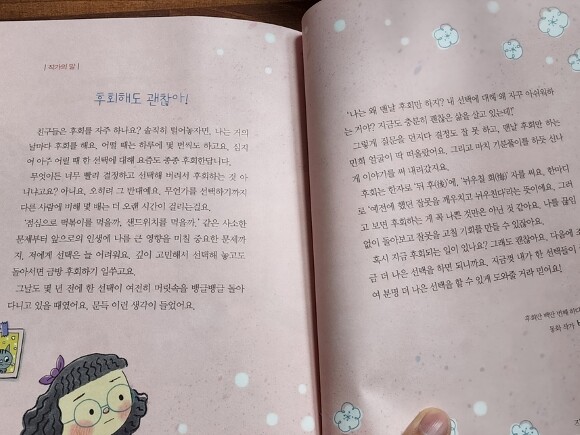 | 작가의 말 |
후회해도 괜찮아!
친구들은 후회를 자주 하나요? 솔직히 털어놓자면, 나는 거의
날마다 후회를 해요. 어떨 때는 하루에 몇 번씩도 하고요. 심지
어 아주 어릴 때 한 선택에 대해 요즘도 종종 후회한답니다.
무엇이든 너무 빨리 결정하고 선택해 버려서 후회하는 것 아
니냐고요? 아니요, 오히려 그 반대예요. 무언가를 선택하기까지
다른 사람에 비해 몇 배는 더 오랜 시간이 걸리는걸요.
'점심으로 떡볶이를 먹을까, 샌드위치를 먹을까.' 같은 사소한
문제부터 앞으로의 인생에 나름 큰 영향을 미칠 중요한 문제까
지, 저에게 선택은 늘 어려워요. 깊이 고민해서 선택해 놓고도
돌아서면 금방 후회하기 일쑤고요.
그날도 몇 년 전에 한 선택이 여전히 머릿속을 뱅글뱅글 돌아
다니고 있을 때였어요. 문득 이런 생각이 들었어요.
'나는 왜 맨날 후회만 하지? 내 선택에 대해 왜 자꾸 아쉬워하
는 거야? 지금도 충분히 괜찮은 삶을 살고 있는데!'
그렇게 질문을 던지다 결정도 잘 못 하고, 맨날 후회만 하는
민희 얼굴이 딱 떠올랐어요. 그리고 마치 기분풀이를 하듯 신나
게 이야기를 써 내려갔지요.
후회는 한자로 '뒤 후(後)'에, '뉘우칠 회(悔)' 자를 써요. 한마디
로 '예전에 했던 잘못을 깨우치고 뉘우친다'라는 뜻이에요. 그러
고 보면 후회하는 게 꼭 나쁜 것만은 아닌 것 같아요. 나를 끊임
없이 돌아보고 잘못을 고칠 기회를 만들 수 있잖아요.
혹시 지금 후회되는 일이 있나요? 그래도 괜찮아요. 다음에 조
금 더 나은 선택을 하면 되니까요. 지금껏 내가 한 선택들이
여 분명 더 나은 선택을 할 수 있게 도와줄 거라 믿어요!
후회만 백만 번째 하
동화 작가